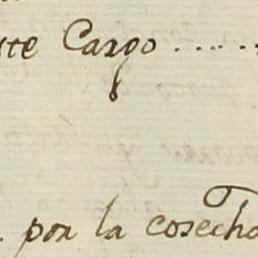 ste Cargo ......
por la cosecha